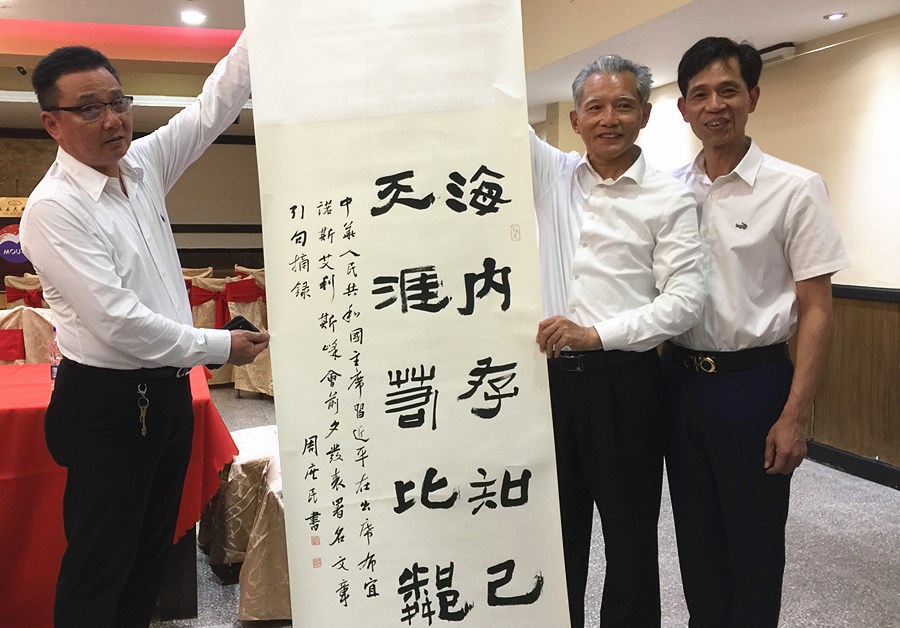 海内存知己
天涯若比鄰
中華人民共和國主席習近平在出席布宜
諾斯艾利斯峰會前夕發表署名文章
引句摘錄
周庶民書